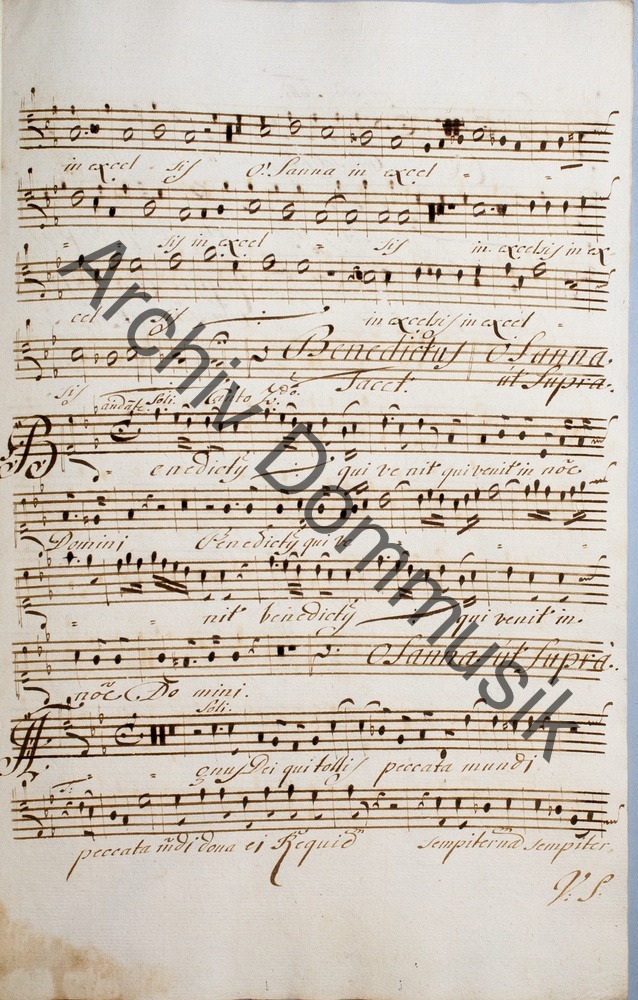 in excel - sis O! Sanna in excel - -
- - sis in excel - sis in excelsis in ex
cel - sis in excelsis in excel -
sis Benedictus O Sanna.
Tacet ut Supra.
andte Soli.
Benedicty qui ve nit qui venit in nõe
Domini Benedicty qui ve
nit benedicty qui venit in.
nõe Do mini. O Sanna ut Supra.
Soli.
gnus Dei qui tollis peccata mundi
peccata mũdi dona ei Requiẽ sempiternã sempiter
V: S:
Archiv Dommusik